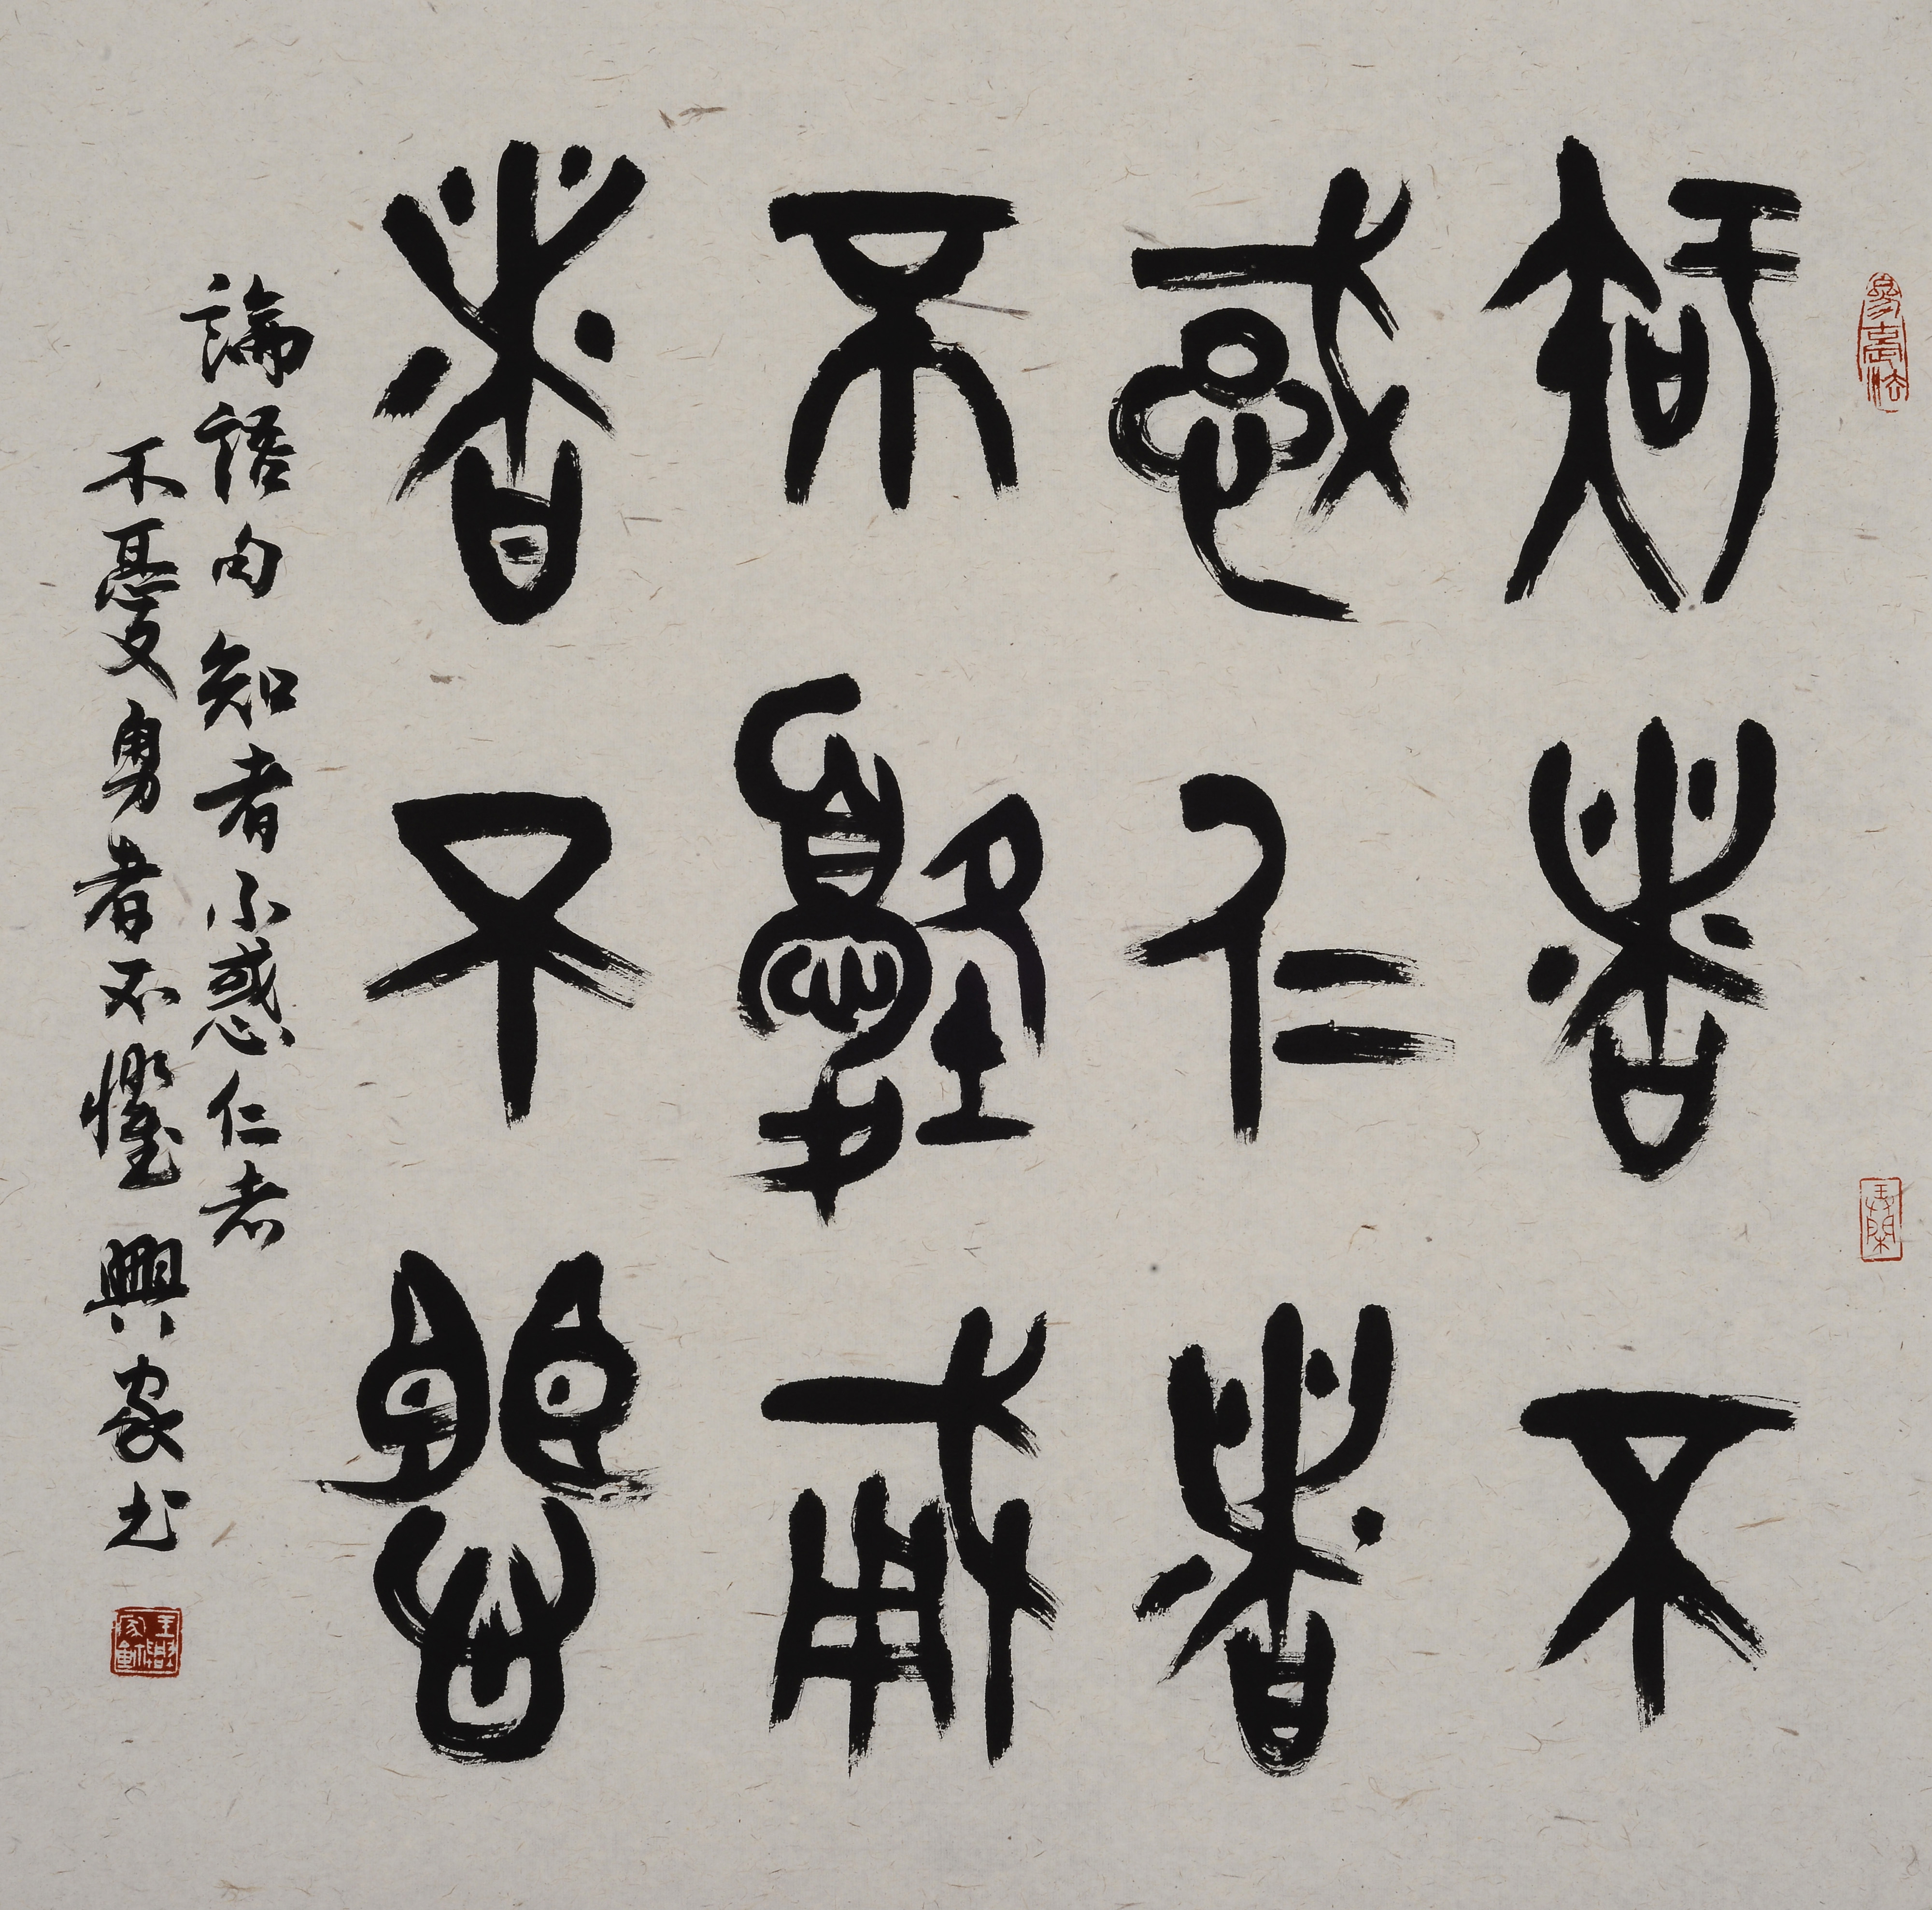 知者不
惑仁者
不憂勇
者不懼
論語句知者不惑仁者
不憂勇者不懼興家書